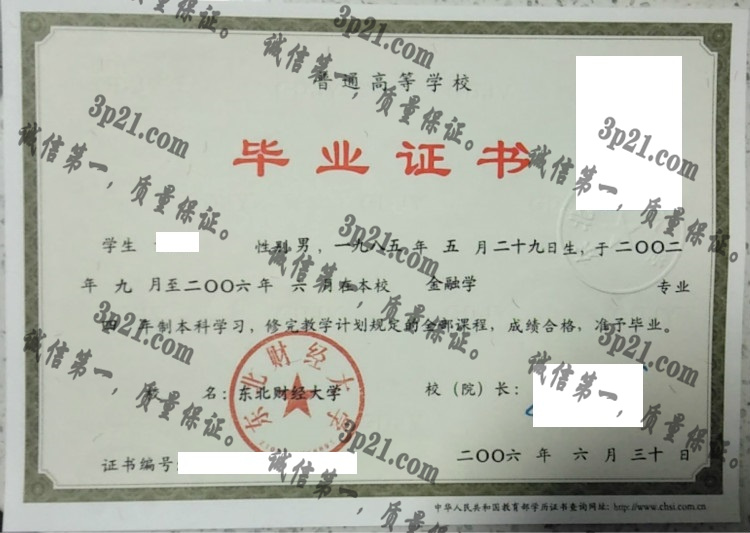 普通高等学校
毕业证书
学生 性别 男，一九八五年 五 月二十九日生，于二〇〇二
年 九 月至二〇〇六年 六 月在本校 金融学 专业
四 年制本科学习，修完教学计划规定的全部课程，成绩合格，准予毕业。
校 名：东北财经大学 校（院）长：
证书编号： 二〇〇六 年 六 月 三十 日
中华人民共和国教育部学历证书查询网址：http://www.chsi.com.cn
东北财经大学
3p21.com
诚信第一，质量保证。
3p21.com
诚信第一，质量保证。
3p21.com
诚信第一，质量保证。
3p21.com
诚信第一，质量保证。
3p21.com
诚信第一，质量保证。
3p21.com
诚信第一，质量保证。
3p21.com
诚信第一，质量保证。
诚信第一，质量保证。